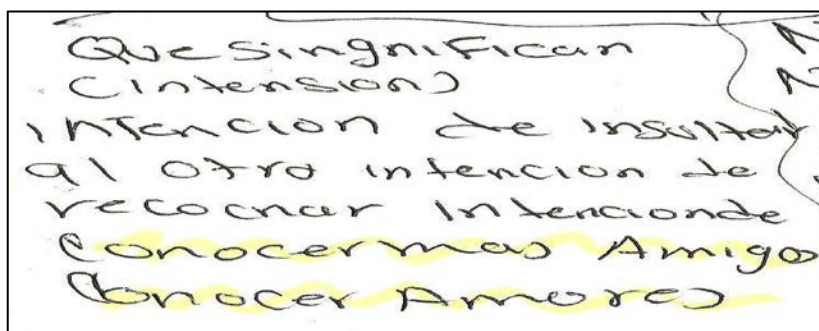 Que Singnifican
(intension)
intencion de insultar
al otro intencion de
recochar intencionde
Conocer mas Amigos
Conocer Amores